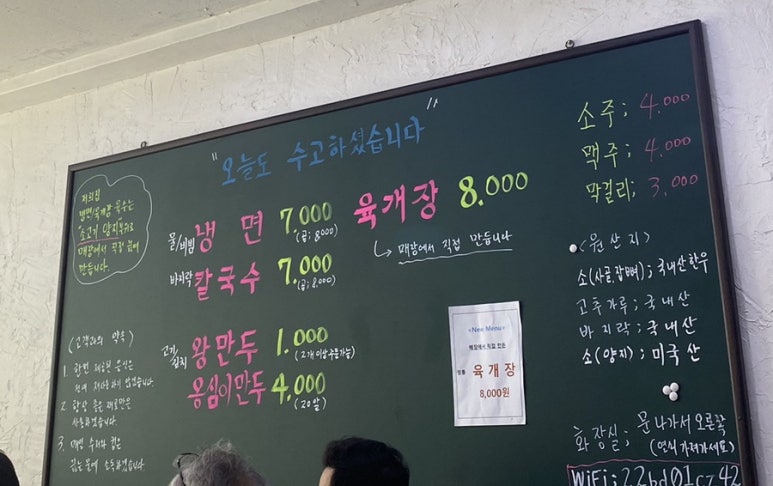 "오늘도 수고하셨습니다"
저희집
냉면/육개장 육수는
"소고기 양지"부위로
매장에서 직접 끓여
만듭니다.
물/비빔 냉면 7.000
(곱; 8,000)
바지락 칼국수 7.000
(곱; 8,000)
고기/김치 왕만두 1.000
(2개 이상 주문가능)
옹심이만두 4.000
(20알)
육개장 8.000
매장에서 직접 만듭니다
(고객과의 약속)
1. 한번 제공된 음식은
절대 재사용하지 않겠습니다
2. 항상 좋은 재료만을
사용하겠습니다
3. 매번 수저와 컵은
끓는 물에 소독하겠습니다
<New Menu>
매장에서 직접 만든
정통 육개장
8,000원
소주; 4.000
맥주; 4.000
막걸리; 3.000
<원산지>
소(사골,잡뼈); 국내산한우
고추가루; 국내산
바지락; 국내산
소(양지); 미국산
화장실; 문 나가서 오른쪽
(열쇠 가져가세요)
WiFi; 22bd01cz42